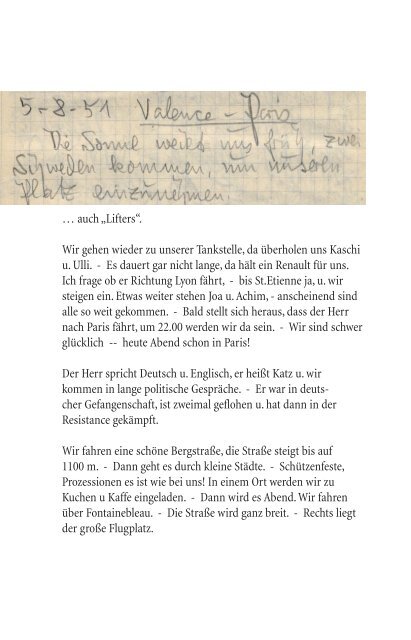 5-8-51 Valence - Paris
Die Sonne weckt uns früh, zwei
Schweden kommen, um unseren
Platz einzunehmen.
… auch „Lifters“.
Wir gehen wieder zu unserer Tankstelle, da überholen uns Kaschi
u. Ulli. - Es dauert gar nicht lange, da hält ein Renault für uns.
Ich frage ob er Richtung Lyon fährt, - bis St.Etienne ja, u. wir
steigen ein. Etwas weiter stehen Joa u. Achim, - anscheinend sind
alle so weit gekommen. - Bald stellt sich heraus, dass der Herr
nach Paris fährt, um 22.00 werden wir da sein. - Wir sind schwer
glücklich -- heute Abend schon in Paris!
Der Herr spricht Deutsch u. Englisch, er heißt Katz u. wir
kommen in lange politische Gespräche. - Er war in deuts-
cher Gefangenschaft, ist zweimal geflohen u. hat dann in der
Resistance gekämpft.
Wir fahren eine schöne Bergstraße, die Straße steigt bis auf
1100 m. - Dann geht es durch kleine Städte. - Schützenfeste,
Prozessionen es ist wie bei uns! In einem Ort werden wir zu
Kuchen u Kaffe eingeladen. - Dann wird es Abend. Wir fahren
über Fontainebleau. - Die Straße wird ganz breit. - Rechts liegt
der große Flugplatz.